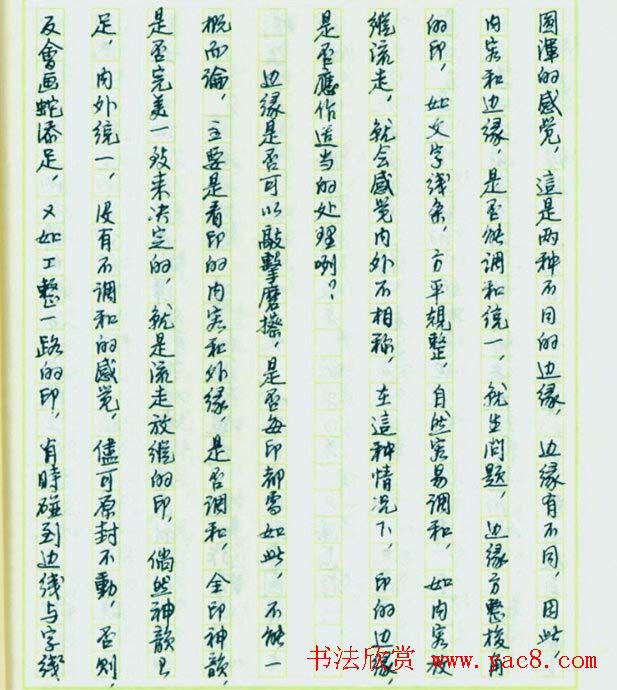 圆渾的感觉，這是两种不同的边缘，边缘有不同，因此，
内容和边缘，是否能调和统一，就生问题，边缘方整梭角
的印，如文字线条，方平規整，自然容易调和，如内容放
縱流走，就会感觉内外不相称，在這种情况下，印的边缘
是否應作适当的处理咧？
边缘是否可以敲擊磨擦，是否每印都需如此，不能一
概而論，主要是看印的内容和外缘是否调和，全印神韻，
是否完美一致来决定的，就是流走放縱的印，倘然神韻具
足，内外统一，没有不调和的感觉，儘可原封不動，否则，
反會画蛇添足，又如工整一路的印，有時碰到边线与字线
书法欣赏 www.yac8.com